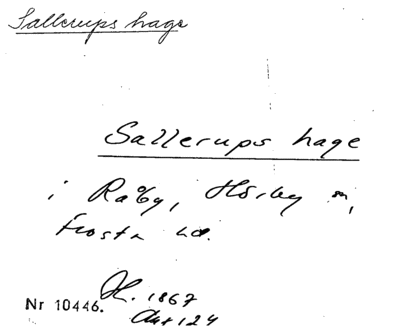 Sallerups hage
Sallerups hage
i Råby, Hörby sn,
Frosta hd.
H. 1867
Nr 10446.
Akt 124